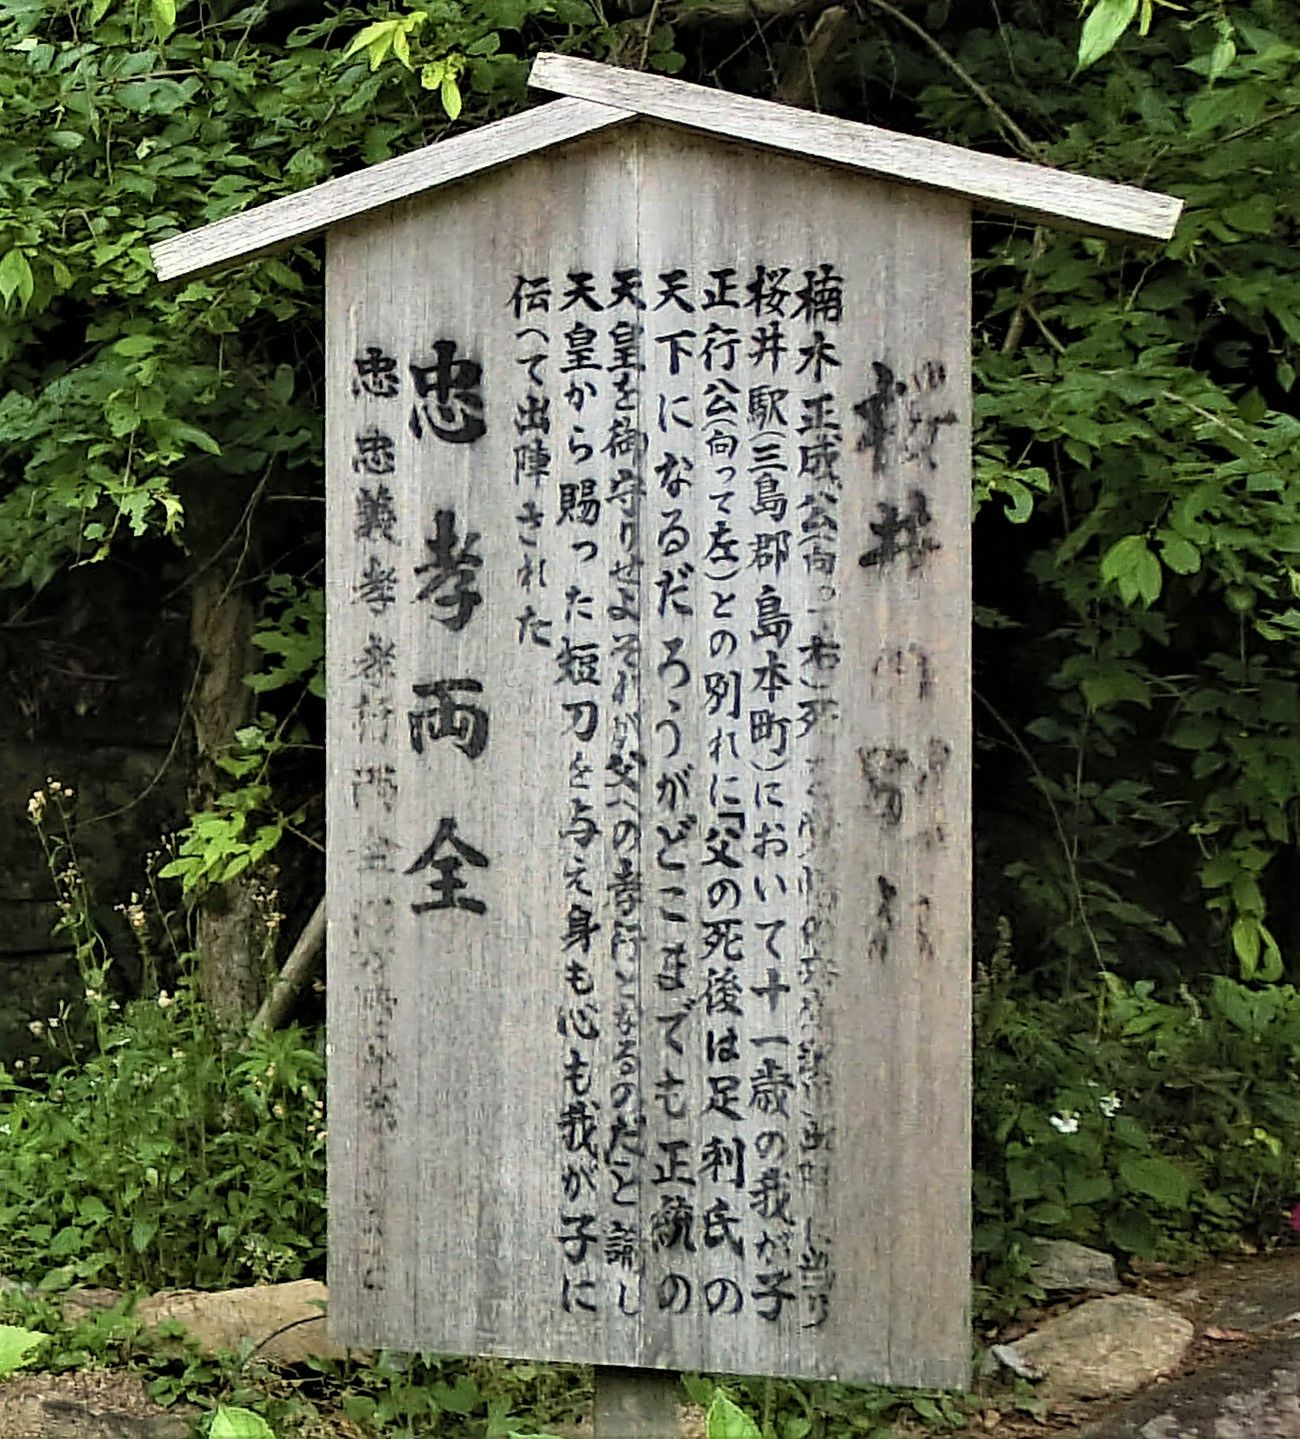 桜井の別れ
楠木正成公(向って右)死
桜井駅(三島郡島本町)において十一歳の我が子
正行公(向って左)との別れに「父の死後は足利氏の
天下になるだろうがどこまでも正統の
天皇を御守りせよそれが父への孝行となるのだと諭し
天皇から賜った短刀を与え身も心も我が子に
伝へて出陣された
忠孝両全
忠忠義孝孝行